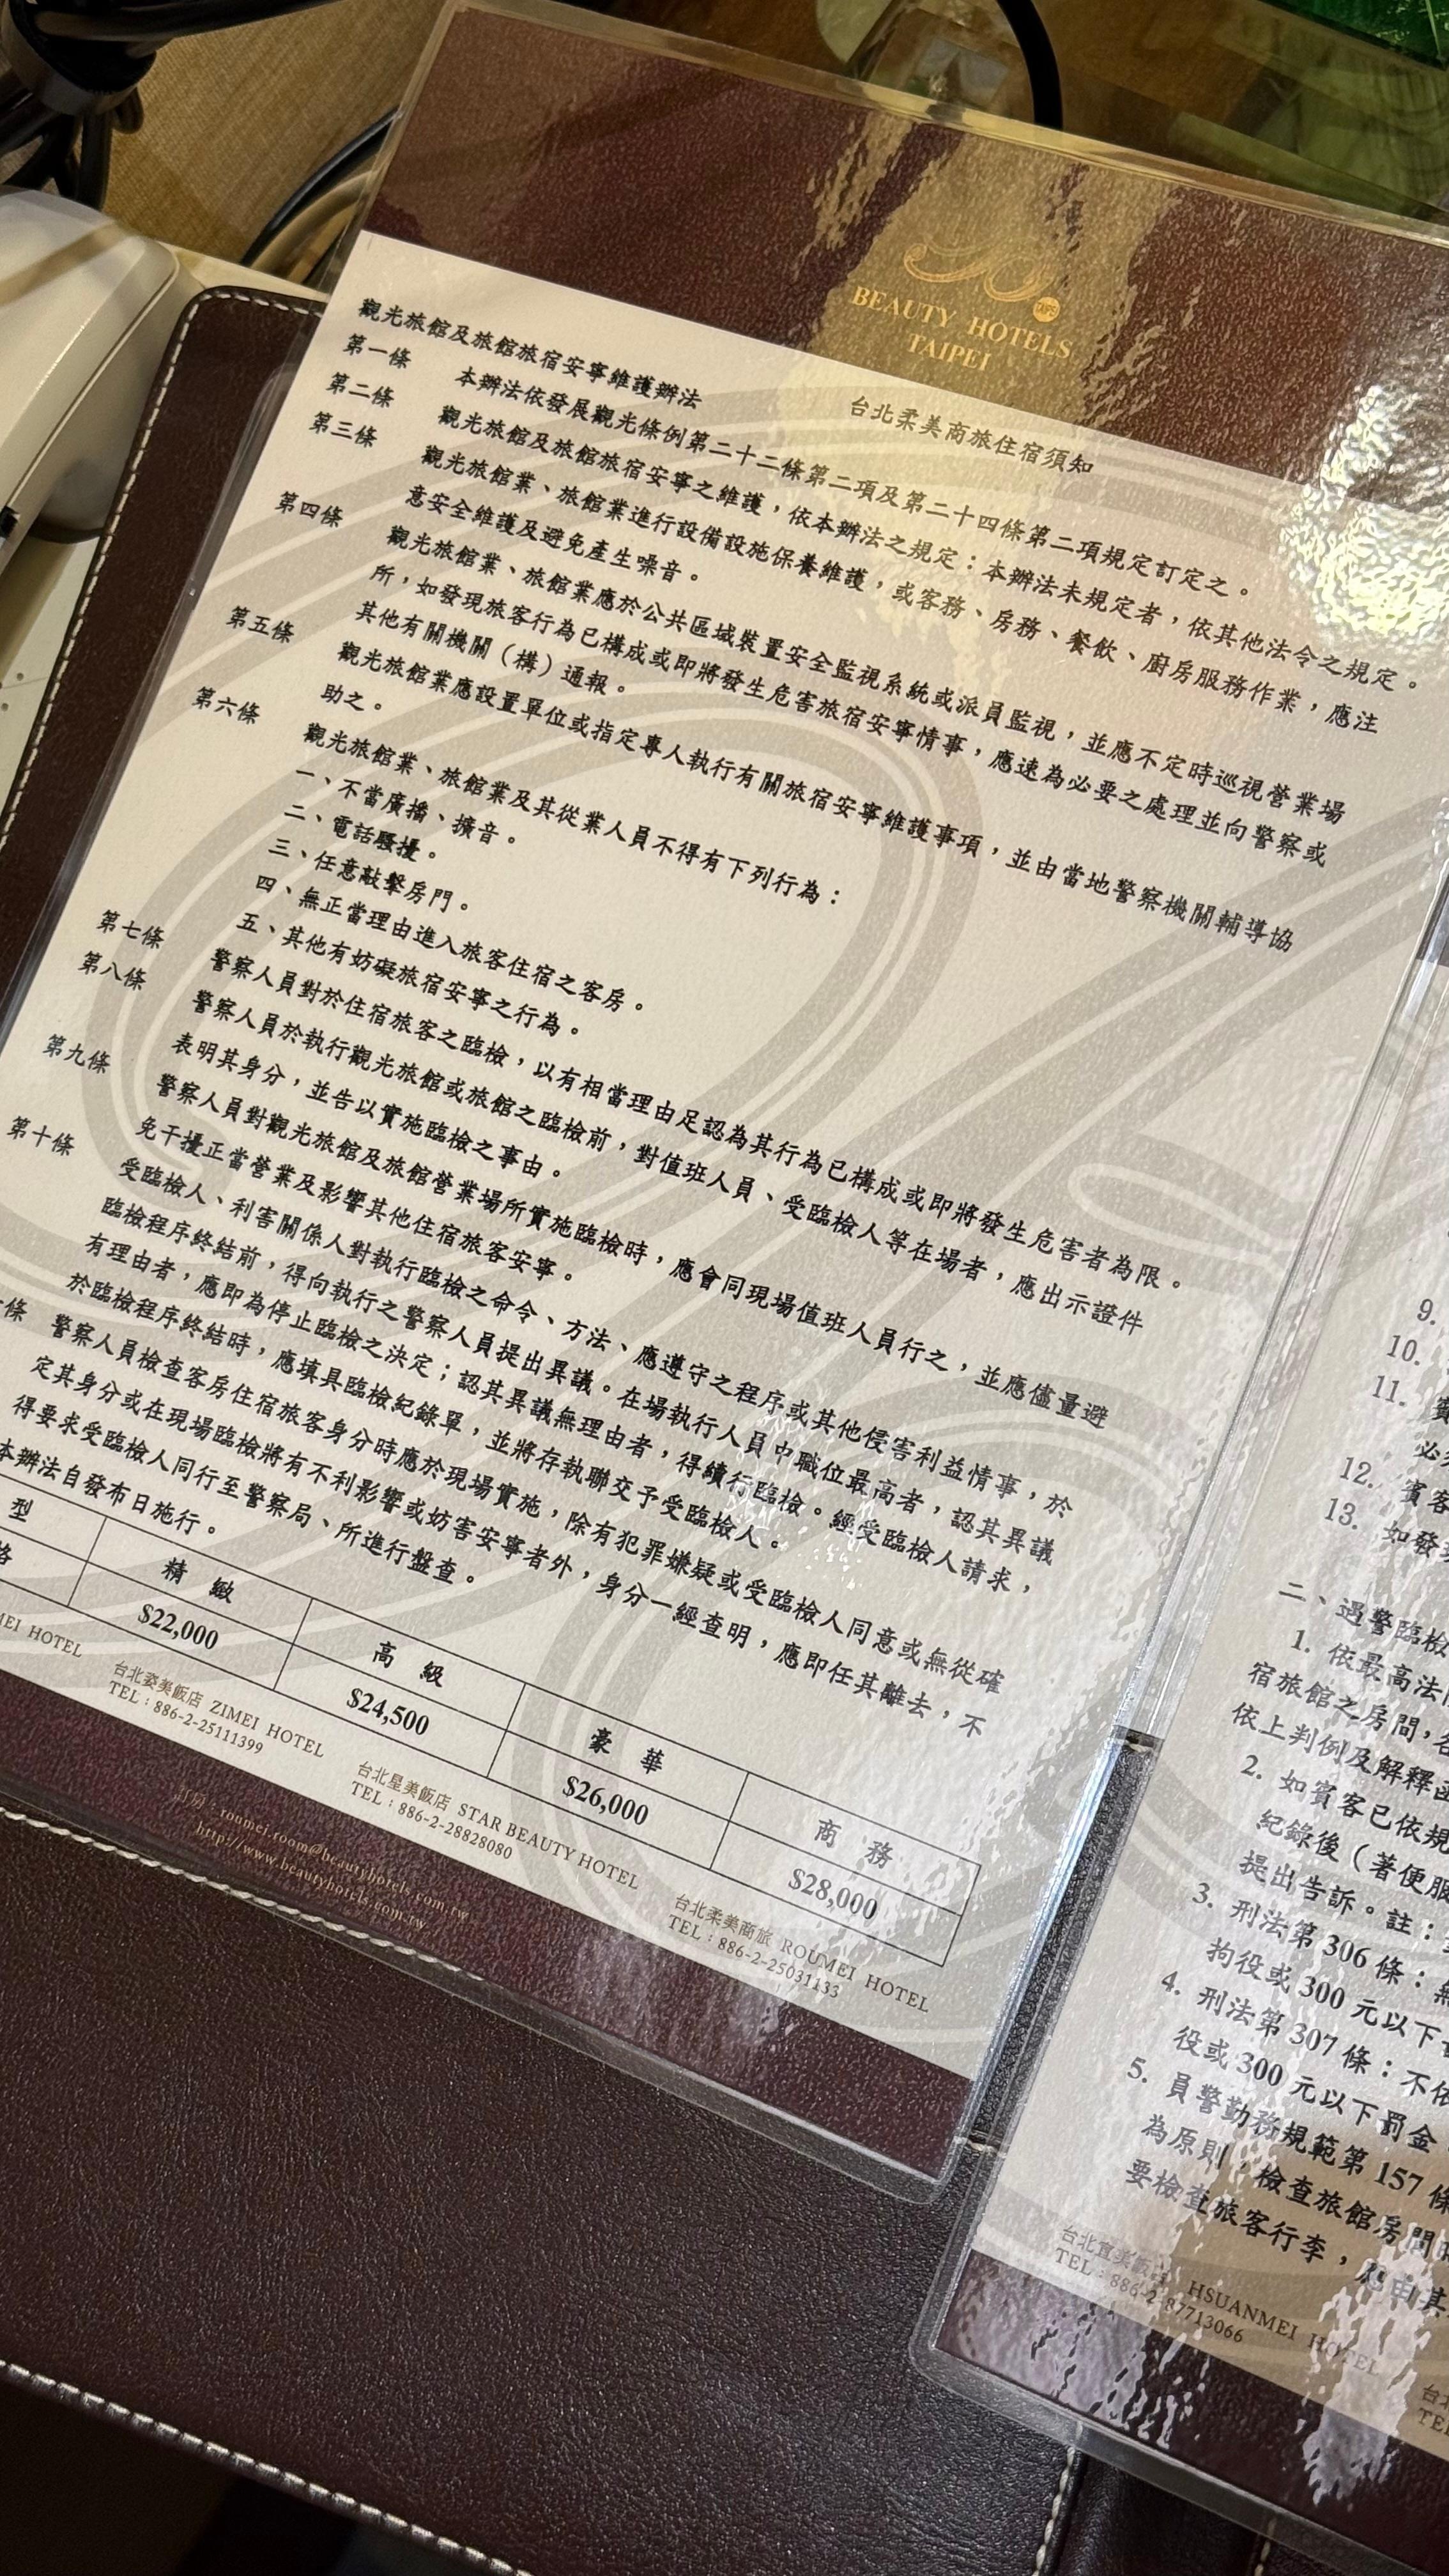 BEAUTY HOTELS
TAIPEI
台北柔美商旅住宿須知
觀光旅館及旅館旅宿安寧維護辦法
第一條 本辦法依發展觀光條例第二十二條第二項及第二十四條第二項規定訂定之。
第二條 觀光旅館及旅館旅宿安寧之維護，依本辦法之規定：本辦法未規定者，依其他法令之規定。
第三條 觀光旅館業、旅館業進行設備設施保養維護，或客務、房務、餐飲、廚房服務作業，應注
意安全維護及避免產生噪音。
第四條 觀光旅館業、旅館業應於公共區域裝置安全監視系統或派員監視，並應不定時巡視營業場
所，如發現旅客行為已構成或即將發生危害旅宿安寧情事，應速為必要之處理並向警察或
其他有關機關（構）通報。
第五條 觀光旅館業應設置單位或指定專人執行有關旅宿安寧維護事項，並由當地警察機關輔導協
助之。
第六條 觀光旅館業、旅館業及其從業人員不得有下列行為：
一、不當廣播、擴音。
二、電話騷擾。
三、任意敲擊房門。
四、無正當理由進入旅客住宿之客房。
五、其他有妨礙旅宿安寧之行為。
第七條 警察人員對於住宿旅客之臨檢，以有相當理由足認為其行為已構成或即將發生危害者為限。
第八條 警察人員於執行觀光旅館或旅館之臨檢前，對值班人員、受臨檢人等在場者，應出示證件
表明其身分，並告以實施臨檢之事由。
第九條 警察人員對觀光旅館及旅館營業場所實施臨檢時，應會同現場值班人員行之，並應儘量避
免干擾正當營業及影響其他住宿旅客安寧。
第十條 受臨檢人、利害關係人對執行臨檢之命令、方法、應遵守之程序或其他侵害利益情事，於
臨檢程序終結前，得向執行之警察人員提出異議。在場執行人員中職位最高者，認其異議
有理由者，應即為停止臨檢之決定；認其異議無理由者，得續行臨檢。經受臨檢人請求，
於臨檢程序終結時，應填具臨檢紀錄單，並將存執聯交予受臨檢人。
條 警察人員檢查客房住宿旅客身分時應於現場實施，除有犯罪嫌疑或受臨檢人同意或無從確
定其身分或在現場臨檢將有不利影響或妨害安寧者外，身分一經查明，應即任其離去，不
得要求受臨檢人同行至警察局、所進行盤查。
本辦法自發布日施行。
型 精 緻 高 級 豪 華 商 務
格 $22,000 $24,500 $26,000 $28,000
MEI HOTEL
台北姿美飯店 ZIMEI HOTEL
TEL：886-2-25111399
台北星美飯店 STAR BEAUTY HOTEL
TEL：886-2-28828080
台北柔美商旅 ROUMEI HOTEL
TEL：886-2-25031133
roumei.room@beautyhotels.com.tw
http://www.beautyhotels.com.tw
9.
10.
11.
必
12. 賓客
13. 如發
二、遇警臨檢
1. 依最高法
宿旅館之房間，
依上判例及解釋
2. 如賓客已依規
紀錄後（著便服
提出告訴。註：
3. 刑法第 306 條：無
拘役或 300 元以下
4. 刑法第 307 條：不依
役或 300 元以下罰金
5. 員警勤務規範第 157 條
為原則，檢查旅館房間
要檢查旅客行李，
台北宣美飯店 HSUANMEI HOTEL
TEL：886-2-87713066